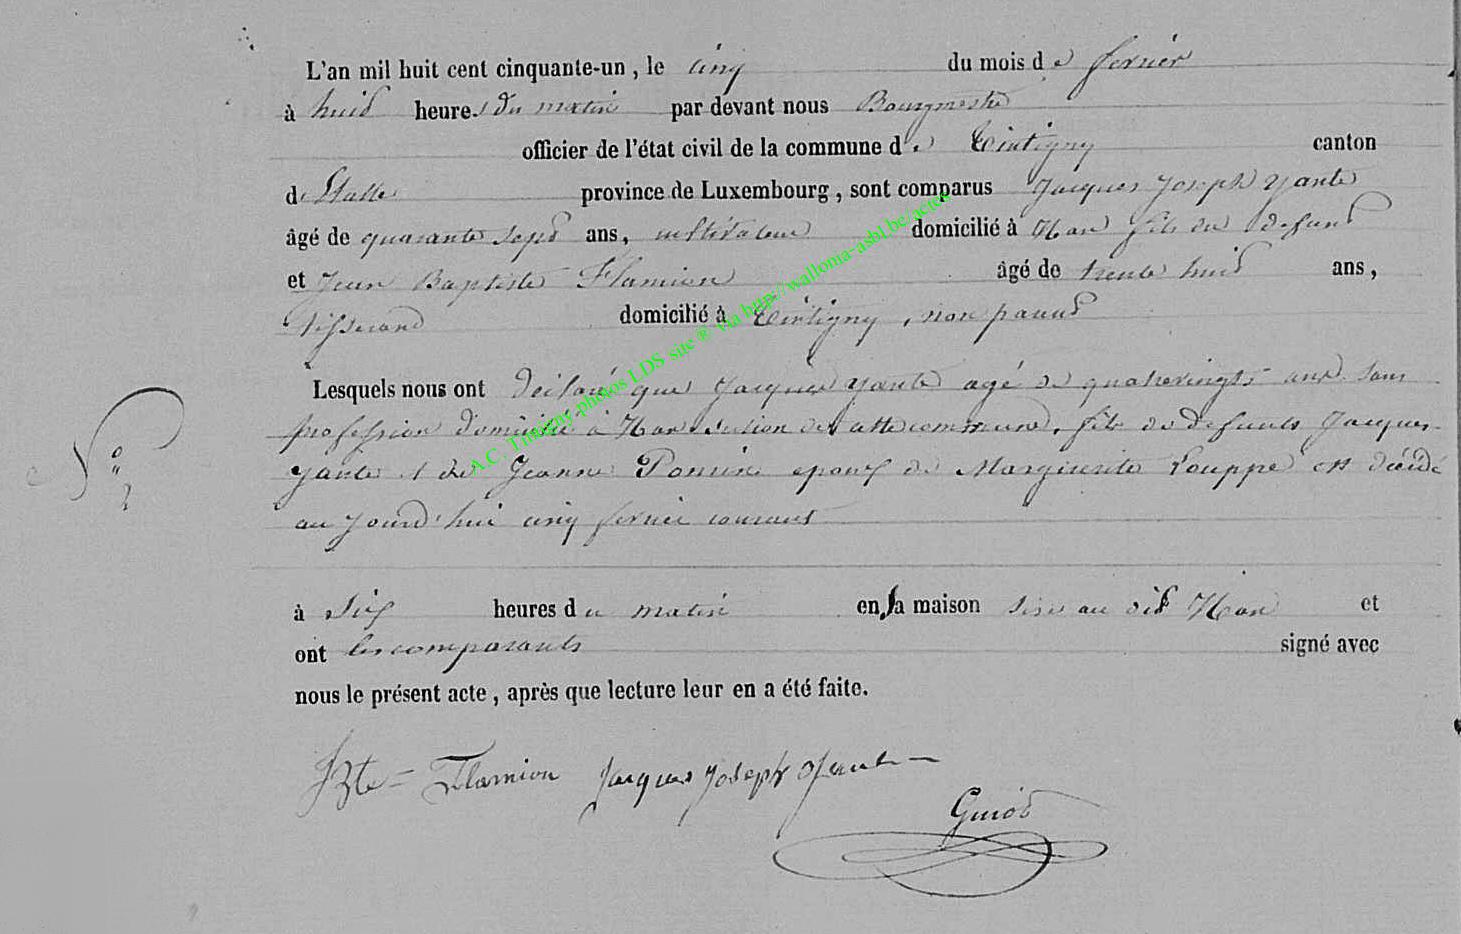 L'an mil huit cent cinquante-un, le cinq du mois de fevrier
à huit heures du matin par devant nous Bourgmestre
officier de l'état civil de la commune de Tintigny canton
d'Etalle province de Luxembourg, sont comparus Jacques Joseph Yante
âgé de quarante sept ans, cultivateur domicilié à Han fils du defunt
et Jean Baptiste Flamion âgé de trente huit ans,
tisserand domicilié à Tintigny, non parent
Lesquels nous ont déclaré que Jacques Yante agé de quatrevingts ans sans
profession domicilié à Han section de cette commune, fils de defunts Jacques
Yante et de Jeanne epoux de Marguerite Pouppé est décédé
au jourd'hui cinq fevrier courant
N° 2
à six heures du matin en sa maison sise au dit Han et
ont les comparants signé avec
nous le présent acte, après que lecture leur en a été faite.
JBte Flamion Jacques Joseph Yante
Guiot
A.C. Tintigny photos LDS site ® via http://wallonia-asbl.be/actes